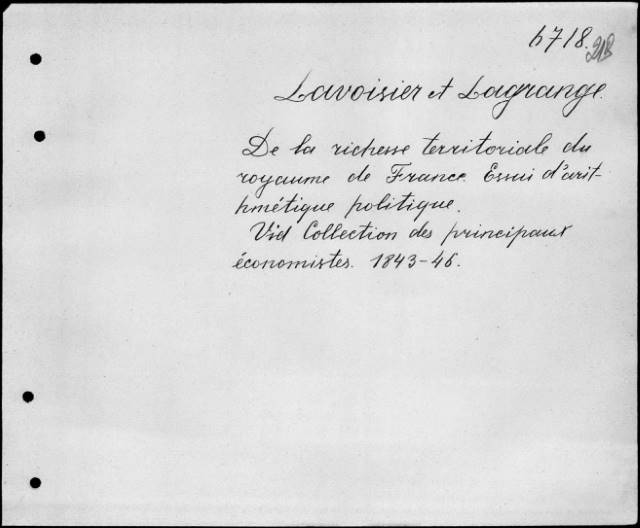 6718.
218
Lavoisier et Lagrange.
De la richesse territoriale du
royaume de France. Essai d'arit-
hmétique politique.
Vid Collection des principaux
économistes. 1843-46.